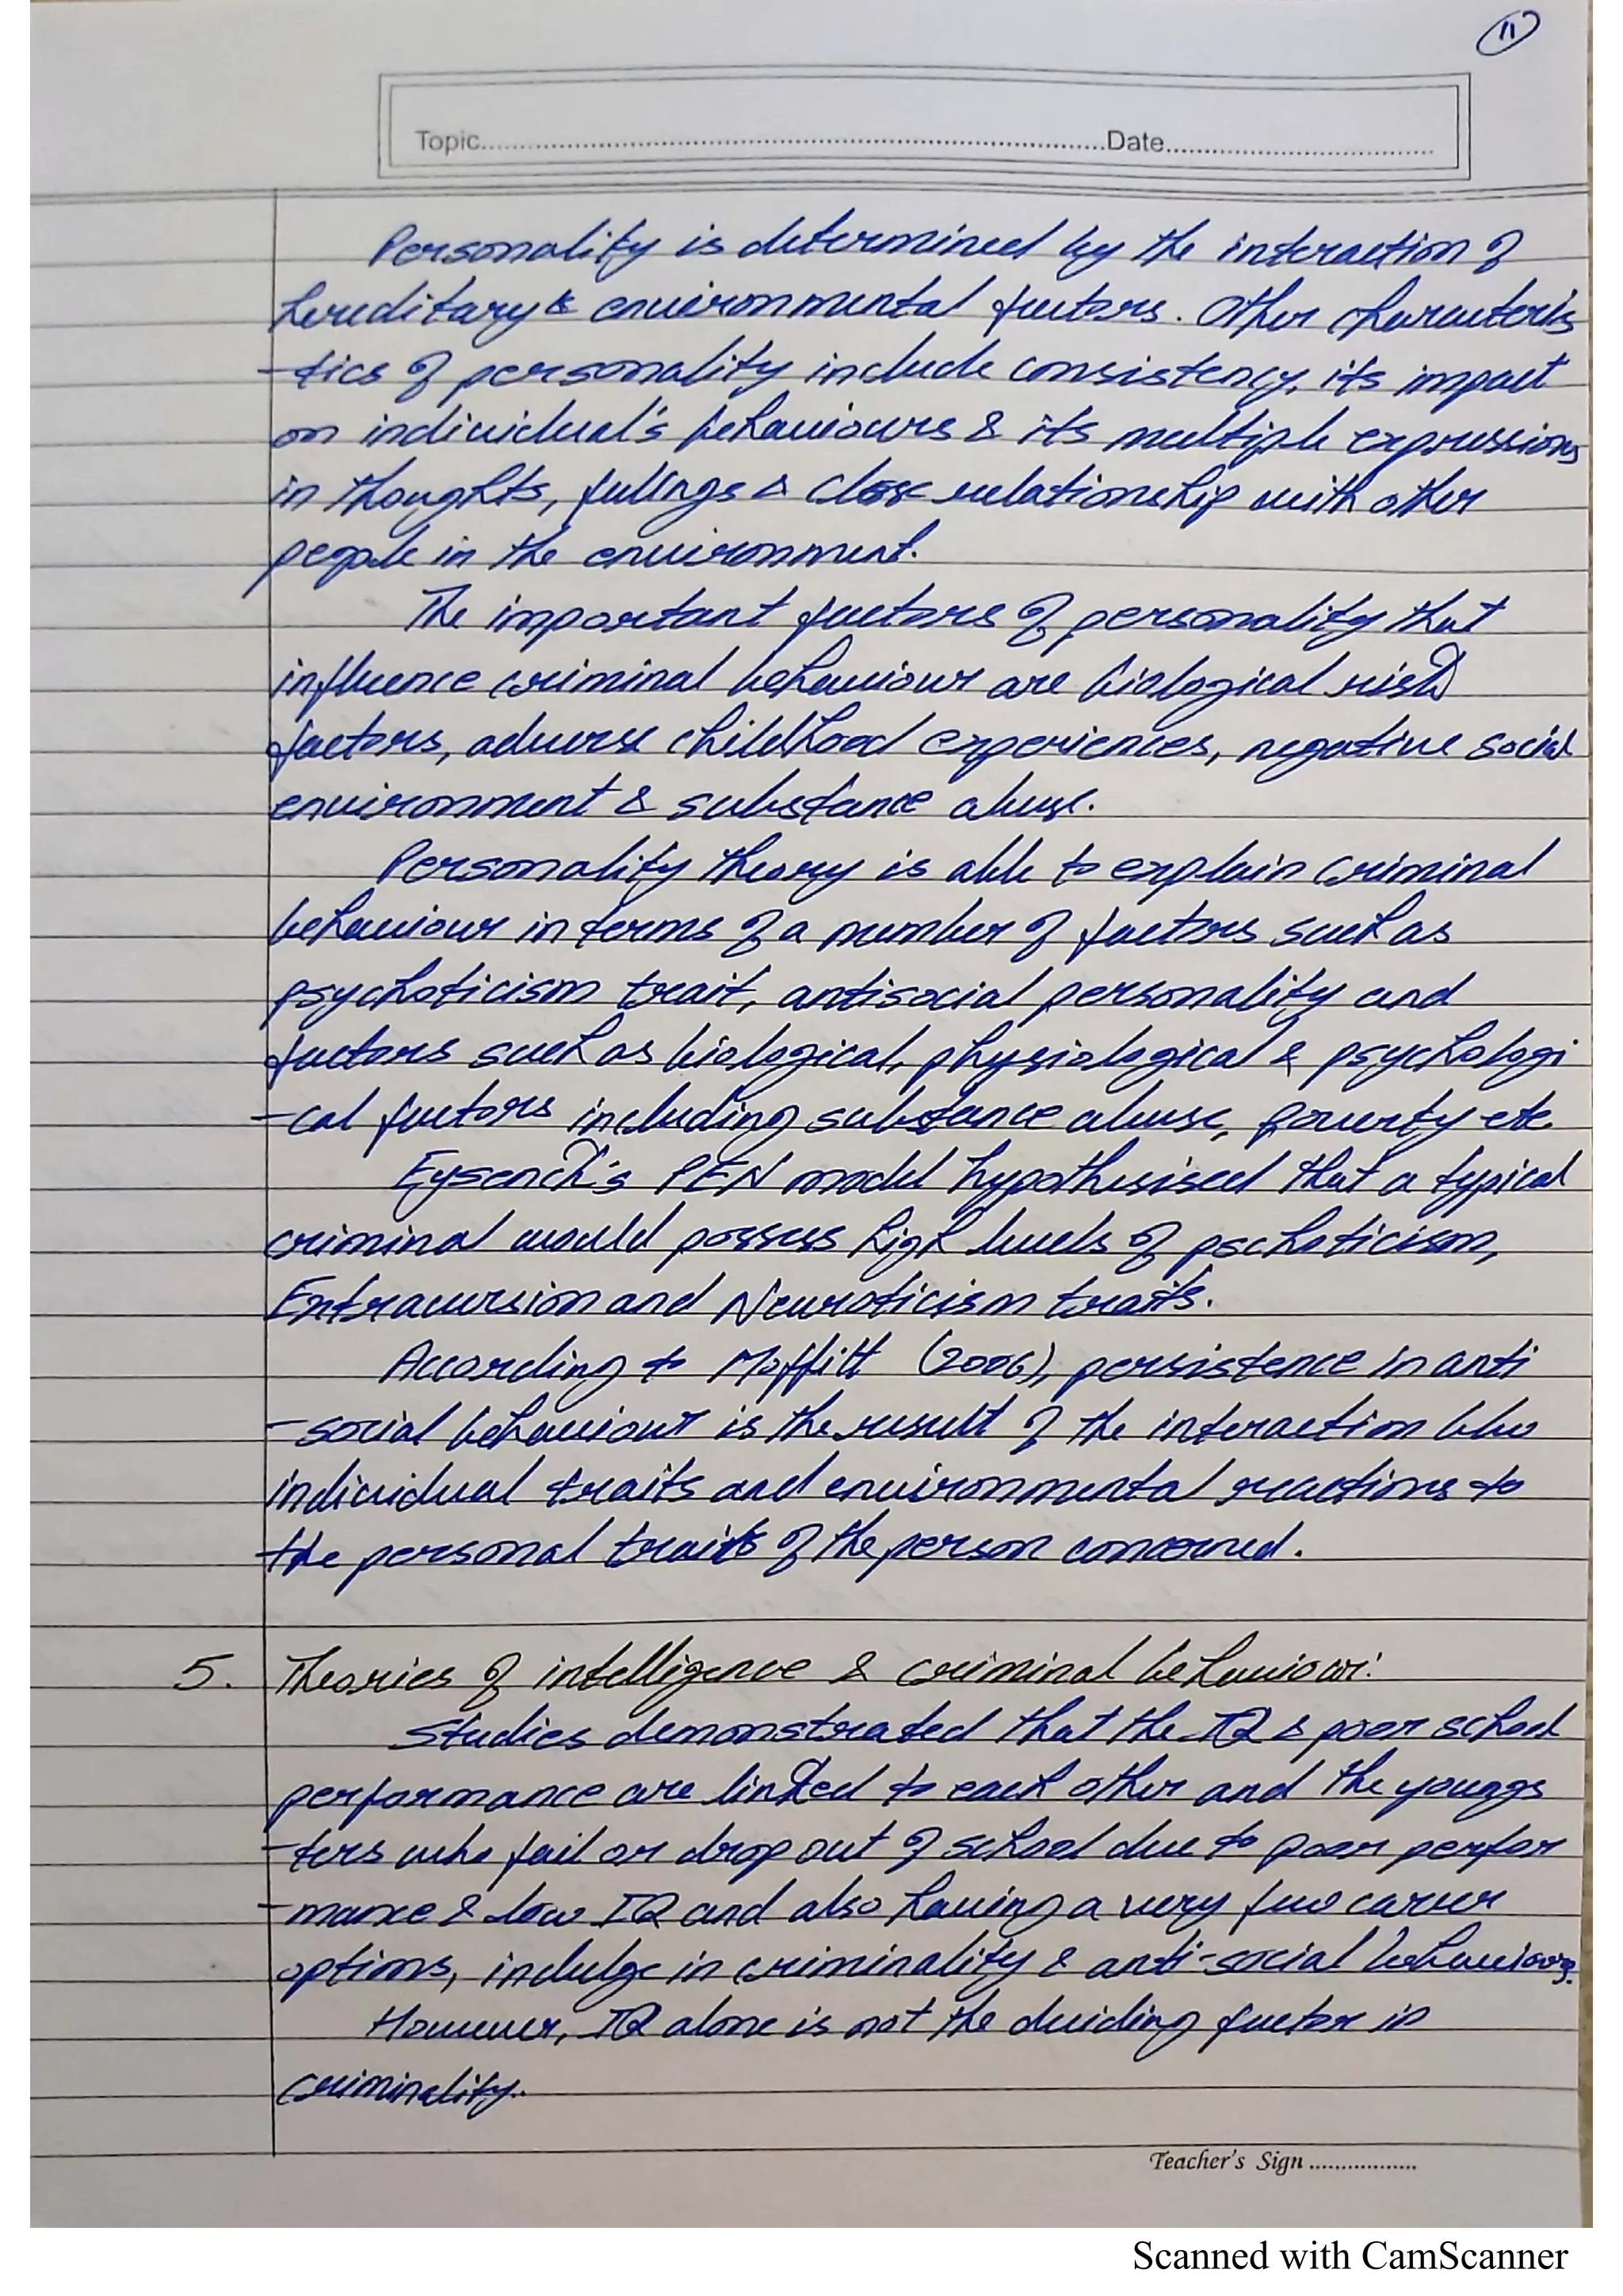 11
Topic.....Date.....
Personality is determined by the interaction of
hereditary & environmental factors. Other characteris
-tics of personality include consistency, its impact
on individual's behaviours & its multiple expressions
in thoughts, fellings & close relationship with other
people in the environment.
The important factors of personality that
influence criminal behaviour are biological risk
factors, adverse childhood experiences, negative social
environment & substance abuse.
Personality theory is able to explain criminal
behaviour in terms of a number of factors such as
psychoticism trait, antisocial personality and
factors such as biological, physiological & psychologi
-cal factors including substance abuse, poverty etc.
Eysenck's PEN model hypothesised that a typical
criminal would possess high levels of pschoticism,
Extraversion and Neuroticism traits.
According to Moffitt (2006), persistence in anti
-social behaviour is the result of the interaction b/w
individual traits and environmental reactions to
the personal traits of the person concerned.
5. Theories of intelligence & criminal behaviour:
Studies demonstrated that the IQ & poor school
performance are linked to each other and the youngs
-ters who fail or drop out of school due to poor perfor
-mance & low IQ and also having a very few career
options, indulge in criminality & anti-social behaviours.
However, IQ alone is not the deciding factor in
criminality.
Teacher's Sign .................
Scanned with CamScanner